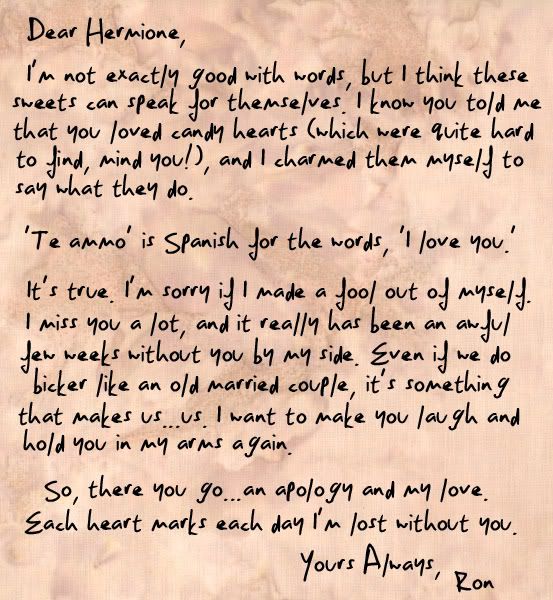 Dear Hermione,
I'm not exactly good with words, but I think these
sweets can speak for themselves. I know you told me
that you loved candy hearts (which were quite hard
to find, mind you!), and I charmed them myself to
say what they do.
'Te ammo' is Spanish for the words, 'I love you.'
It's true. I'm sorry if I made a fool out of myself.
I miss you a lot, and it really has been an awful
few weeks without you by my side. Even if we do
bicker like an old married couple, it's something
that makes us...us. I want to make you laugh and
hold you in my arms again.
So, there you go...an apology and my love.
Each heart marks each day I'm lost without you.
Yours Always,
Ron